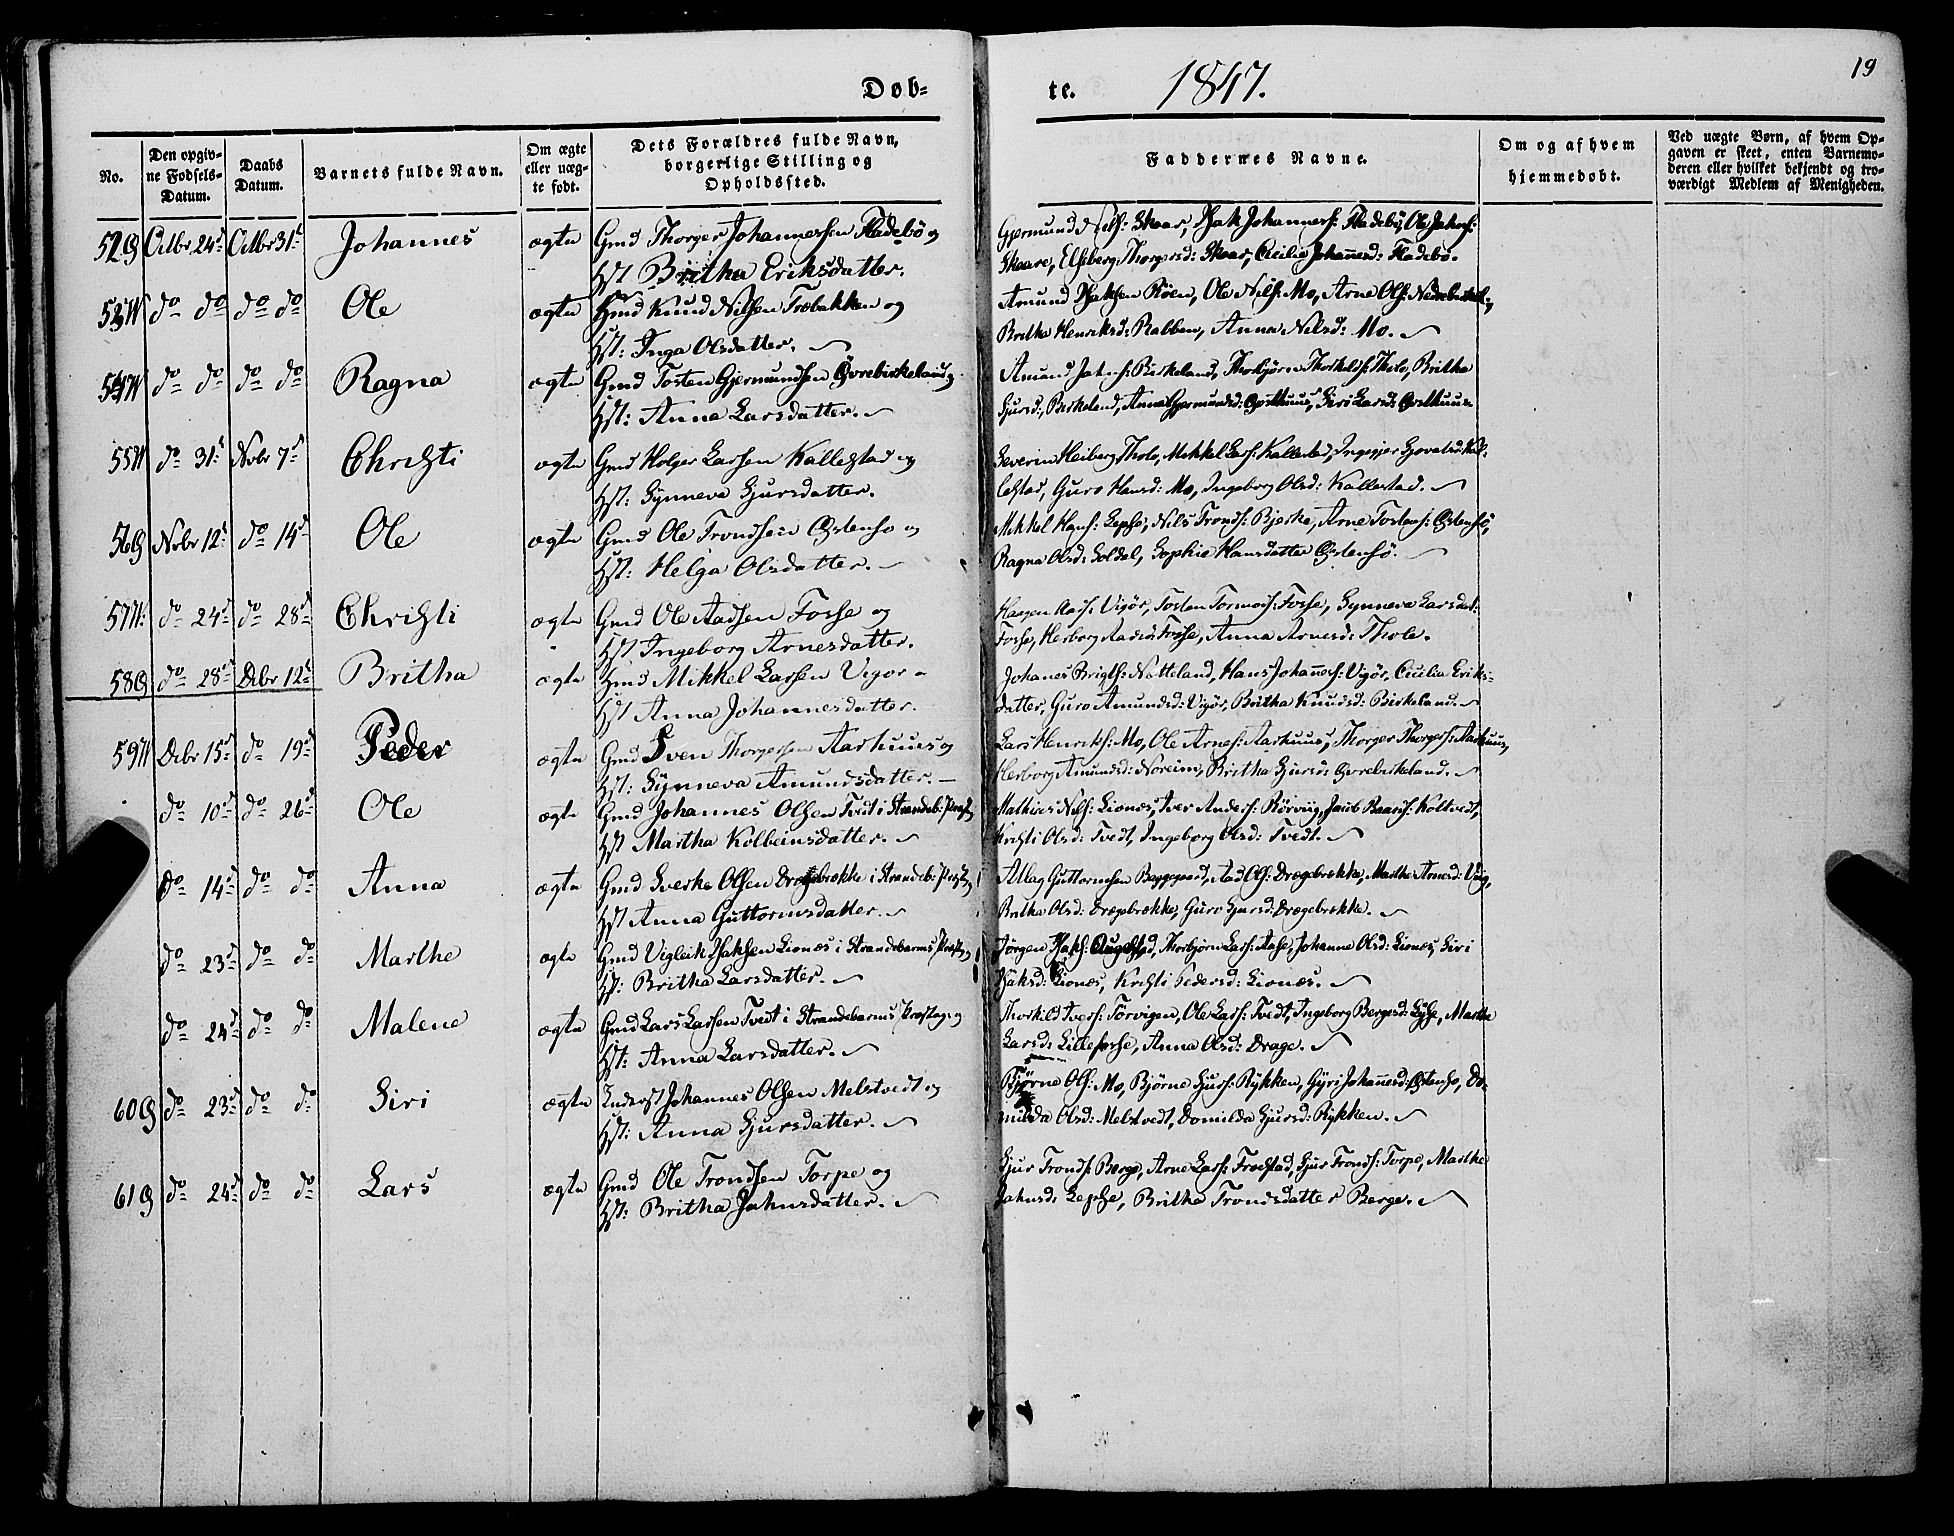 Døb-
te. 1847.
19
No.
Den opgiv-
ne Fødsels-
Datum.
Daabs
Datum.
Barnets fulde Navn.
Om ægte
eller uæg-
te født.
Dets Forældres fulde Navn,
borgerlige Stilling og
Opholdssted.
Faddernes Navne.
Om og af hvem
hjemmedøbt.
Ved uægte Børn, af hvem Op-
gaven er skeet, enten Barnemo-
deren eller hvilket bekjendt og tro-
værdigt Medlem af Menigheden.
52 Octbr 24d Octbr 31t Johannes ægte Gmd Thorger Johannessen Fladebø og
Hst Britha Eriksdatter.
Gjermund Skaar, Isak Johannesf: Fladebø, Ole
Skaare, Elseberg Thorgersd: Skaar, Cecilia Johannesd: Fladebø.
53 do do do do Ole ægte Gmd Knud Nilsen Træbakken og
Hst: Inga Olsdatter.
Amund Isaksen Røen, Ole Nilsf: Mo, Arne Olsf:
Britha Henriksd: Rabben, Anna Nilsd: Mo.
54 do do do do Ragna ægte Gmd Tosten Gjermundsen Øvrebirkeland og
Hst: Anna Larsdatter.
Amund Birkeland, Thorbjørn Thorkelsf: Tholo, Britha
Gjursd: Birkeland, Anna Gjermundsd: Opsthuus, Siri Larsd: Opsthuus
55 do 31t Novbr 7d Christi ægte Gmd Holger Larsen Kallestad og
Hst: Synneva Gjursdatter.
Severin Heiberg Thole, Mikkel Larsf: Kallestad,
lestad, Guro Hansd: Mo, Ingeborg Olsd: Kallestad.
56 Novbr 12t do 14d Ole ægte Gmd Ole Trondsen Østensø og
Hst: Helga Olsdatter.
Mikkel Hansf: Lepsø, Nils Trondsf: Bjerke, Arne Tostensf: Østensø,
Ragna Olsd: Soldal, Sophie Hansdatter Østensø.
57 do 24d do 28d Christi ægte Gmd Ole Aadsen Fosse og
Hst Ingeborg Arnesdatter.
Haagen Aadsf: Vigør, Tosten Tormodsf: Fosse, Synneva Larsdat:
Fosse, Herborg Aadsd: Fosse, Anna Arnesd: Thole.
58 do 28d Decbr 12t Britha ægte Gmd Mikkel Larsen Vigør
Hst Anna Johannesdatter.
Johannes Natteland, Hans Johannesf: Vigør, Cecilia Eriks-
datter, Guro Amundsd: Vigør, Britha Knudsd: Birkeland.
59 Decbr 15d do 19d Peder ægte Gmd Sven Thorgersen Aarhuus og
Hst: Synneva Amundsdatter.
Lars Henriksf: Mo, Ole Arnesf: Aarhuus, Thorger Thorgersf: Aarhuus,
Herborg Amundsd: Noreim, Britha Gjursd: Øvrebirkeland.
do 10d do 26d Ole ægte Gmd Johannes Olsen Tvedt i Strandeb: Præstg
Hst Martha Kolbeinsdatter.
Mathias Nilsf: Lionæs, Iver Andersf: Rørvig, Jacob Baarsf: Koltvedt,
Kristi Olsd: Tvedt, Ingeborg Olsd: Tvedt.
do 14d do do Anna ægte Gmd Sverke Olsen Drægebrække i Strandeb: Præstg
Hst Anna Guttormsdatter.
Guttormsen Aad Olsf: Drægebrække, Marthe Arnesd:
Britha Olsd: Drægebrække, Guro Gjursd: Drægebrække.
do 23d do do Marthe ægte Gmd Vigleik Isaksen Lionæs i Strandebarms Præstg
Hst: Britha Larsdatter.
Jørgen Isaksf: Augestad, Thorbjørn Larsf: Aase, Johanna Olsd: Lionæs, Siri
Isaksd: Lionæs, Kristi Pedersd: Lionæs.
do 24d do do Malene ægte Gmd Lars Larsen Tvedt i Strandebarms Præstg og
Hst: Anna Larsdatter.
Thorkild Iversf: Tørvigen, Ole Larsf: Tvedt, Ingeborg Bergesd: Marthe
Larsd: Lillefosse, Anna Olsd: Drage.
60 do 23d do do Siri ægte Inderst Johannes Olsen Melstvedt og
Hst: Anna Gjursdatter.
Bjørne Olsf: Mo, Bjørne Gjursf: Rykken, Gyri Johannesd: Østensø, Do-
milda Olsd: Melstvedt, Domilda Gjursd: Rykken.
61 do 24d do do Lars ægte Gmd Ole Trondsen Torpe og
Hst: Britha Jahnsdatter.
Gjur Trondsf: Berge, Arne Larsf: Gjur Trondsf: Torpe, Marthe
Jahnsd: Lepsø, Britha Trondsdatter Berge.